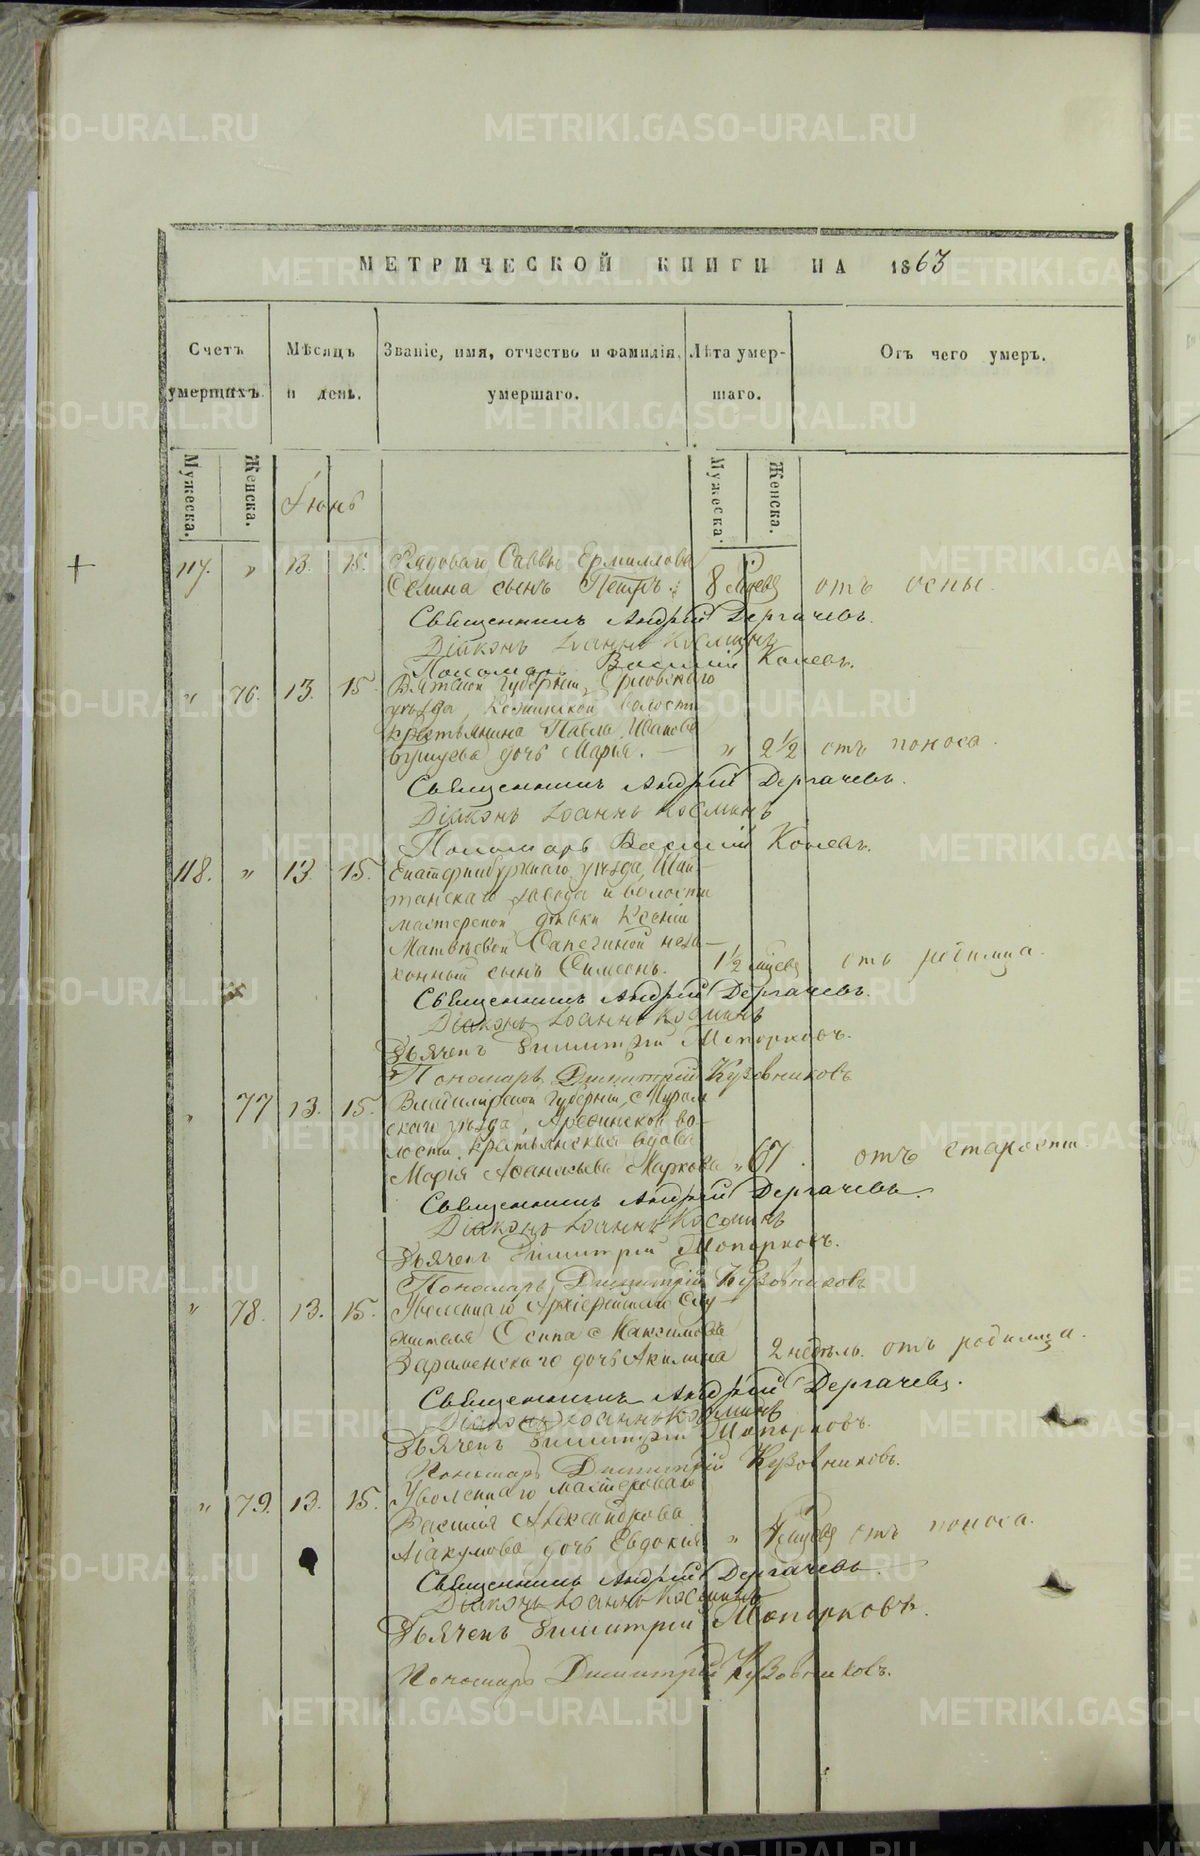 МЕТРИЧЕСКОЙ КНИГИ НА 1863
Счетъ умершихъ.
Мѣсяцъ и день.
Званіе, имя, отчество и фамилія умершаго.
Лѣта умершаго.
Отъ чего умеръ.
Мужеска.
Женска.
Мужеска.
Женска.
Іюнь
117. " 13. 15. Рядоваго Саввы Ермилова
Селина сынъ Петръ. 8 отъ оспы.
Священникъ Андрей Дергачевъ.
Діаконъ Іоаннъ Косминъ
Пономарь Василій Коневъ.
" 76. 13. 15. Вятской Губерніи, Орловскаго
уѣзда, волости
крестьянина Павла Иванова
дочь Марья. " 2 1/2 отъ поноса.
Священникъ Андрей Дергачевъ.
Діаконъ Іоаннъ Косминъ
Пономарь Василій Коневъ.
118. " 13. 15. Екатеринбургскаго уѣзда, Шай-
танскаго завода и волости
мастерской дѣвки Ксеніи
Матвѣевой Сапегиной неза-
конный сынъ Симеонъ. 1 1/2 отъ родимца.
Священникъ Андрей Дергачевъ.
Діаконъ Іоаннъ Косминъ
Дьячекъ Димитрій Топорковъ.
Пономарь Димитрій Кузовниковъ
" 77 13. 15. Владимірской Губерніи, Муром-
скаго уѣзда, во-
лости, крестьянская вдова
Марія Афанасьева Маркова " 67. отъ старости.
Священникъ Андрей Дергачевъ.
Діаконъ Іоаннъ Косминъ
Дьячекъ Димитрій Топорковъ.
Пономарь Димитрій Кузовниковъ
" 78. 13. 15. Архіерейскаго слу-
жителя Осипа Максимова
дочь Акилина 2 недѣль. отъ родимца.
Священникъ Андрей Дергачевъ.
Діаконъ Іоаннъ Косминъ
Дьячекъ Димитрій Топорковъ.
Пономарь Димитрій Кузовниковъ.
" 79. 13. 15. Уволеннаго мастероваго
Василія Александрова
Абакумова дочь Евдокія " отъ поноса.
Священникъ Андрей Дергачевъ.
Діаконъ Іоаннъ Косминъ
Дьячекъ Димитрій Топорковъ.
Пономарь Димитрій Кузовниковъ.
METRIKI.GASO-URAL.RU